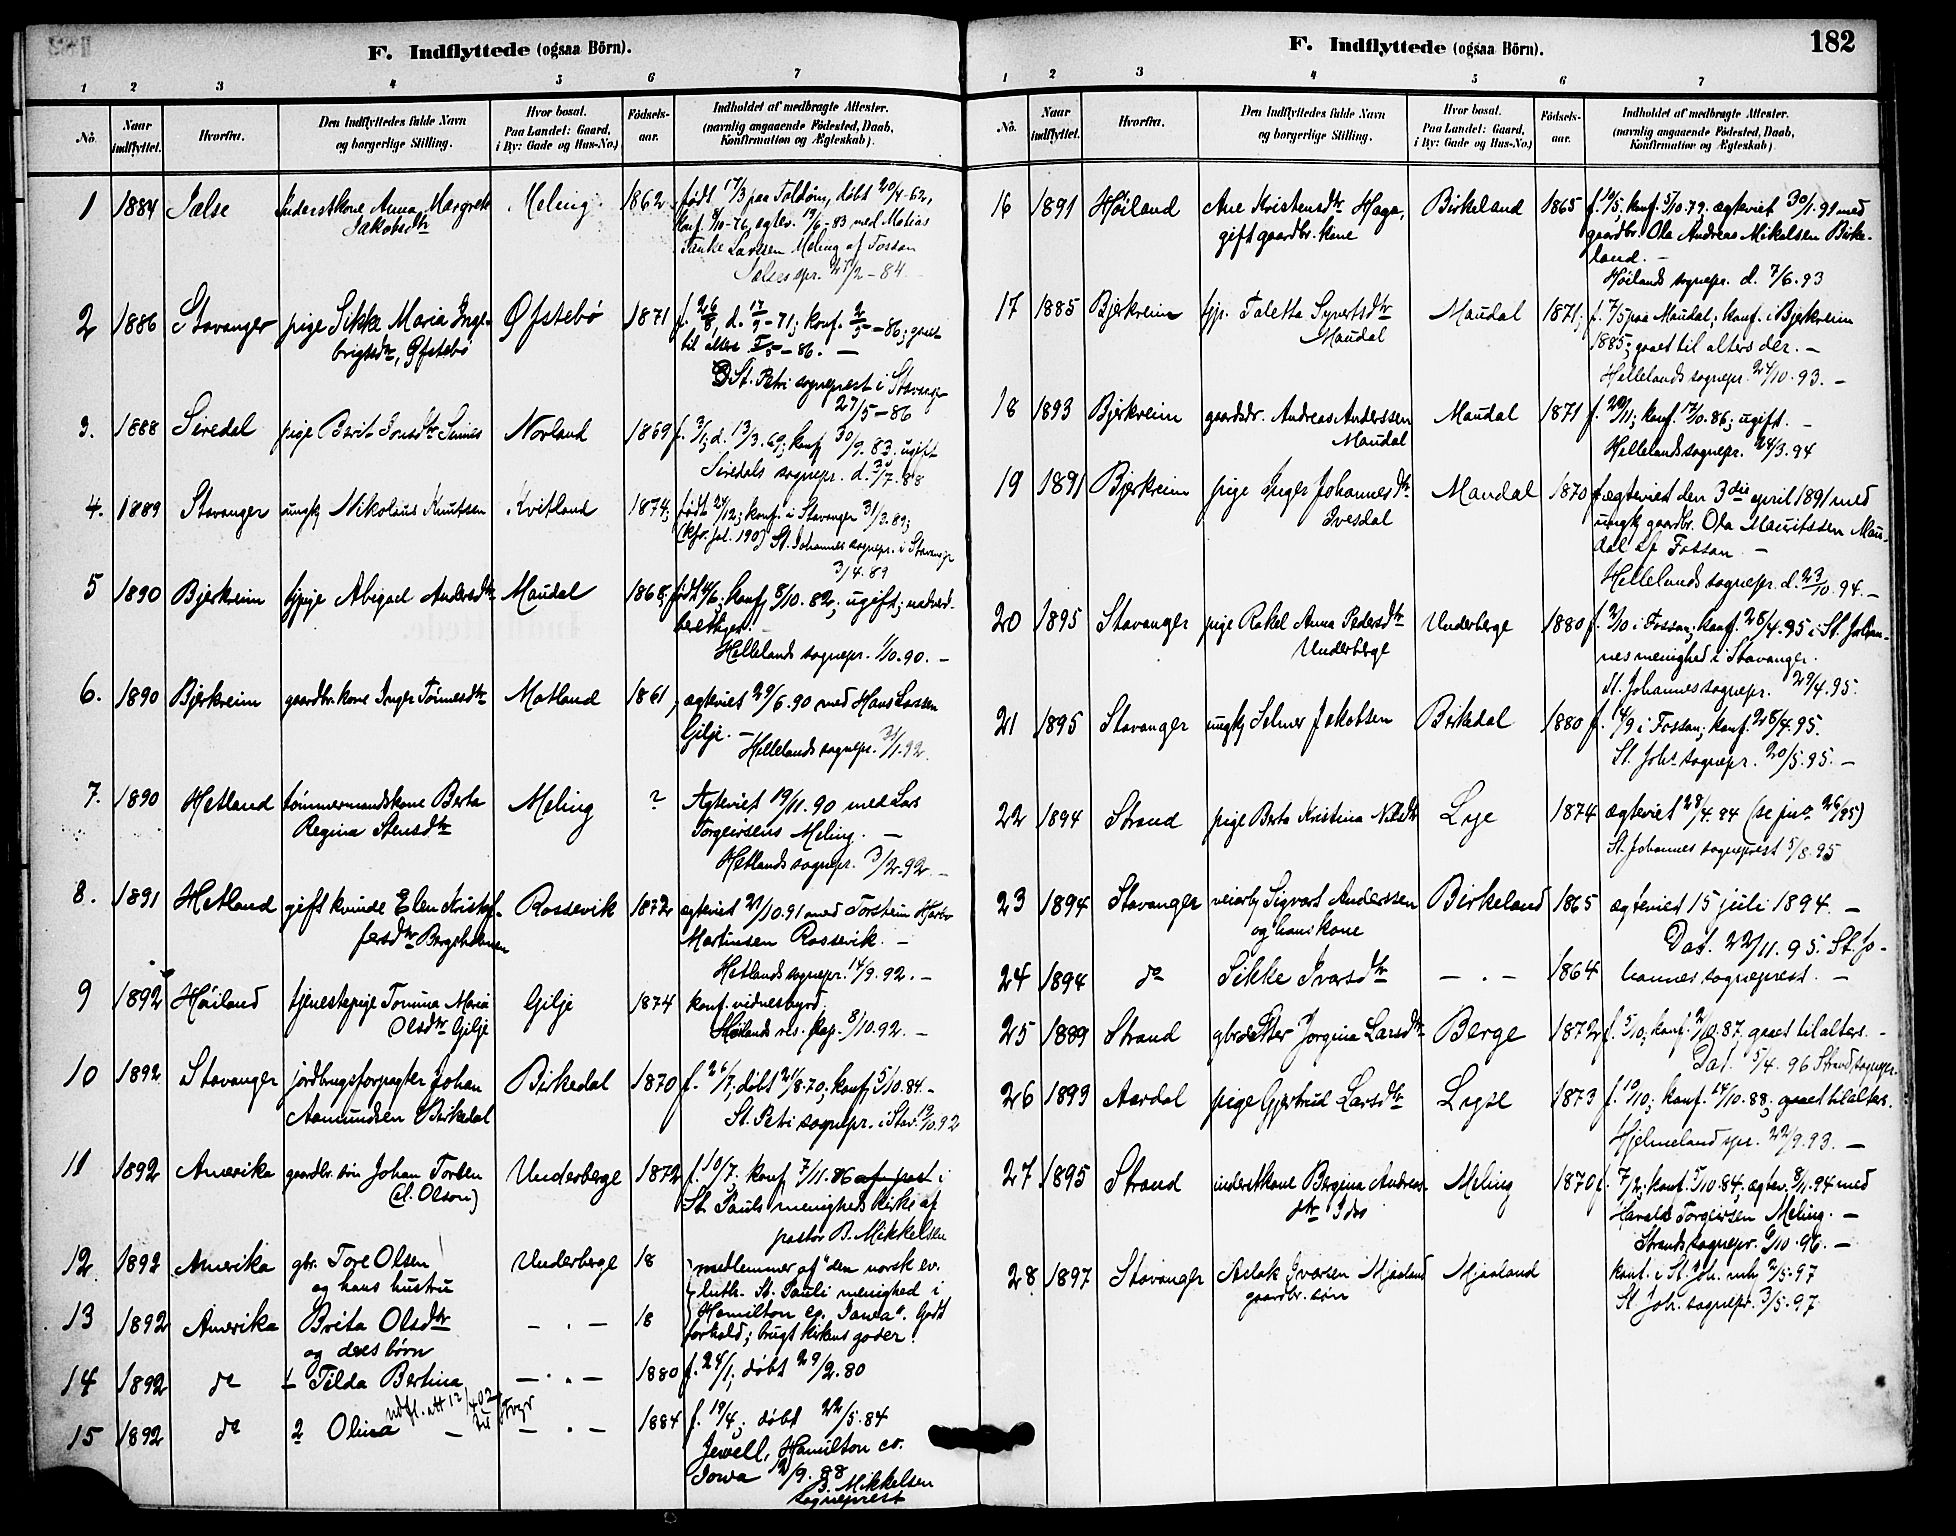 F. Indflyttede (ogsaa Börn).
1 2 3 4 5 6 7
No. Naar indflyttet. Hvorfra. Den Indflyttedes fulde Navn og borgerlige Stilling. Hvor bosat. Paa Landet: Gaard, i By: Gade og Hus-No.) Fødsels-aar. Indholdet af medbragte Attester. (navnlig angaaende Fødested, Daab, Konfirmation og Ægteskab).
1 1884 Inderstkone Anna Margrete Meling. 1862. født 17/3 paa døbt 20/4-62,
Jakobsdtr ægtev. 19/6-83 med
Larsen Meling af Fossan
2 1886 Stavanger pige Sikke Maria Inge- Øfstebø 1871 f. 26/8, konf. -86; gaaet
brigtsdtr, Øfstebø til alters -86. —
St. Petri sogneprest i Stavanger
27/5-86
3. 1888 Siredal pige Berit Norland 1869 f. 3/1; d. 13/3.69; konf 30/9.83. ugift
Siredals sognepr.
4. 1889 Stavanger ungk Nikolaus Knutsen Kvitland 1874; født 24/12; konf. i Stavanger 31/3.89;
(kfr. fol. 190) St. Johannes sognepr. i Stavanger
3/4.89
5 1890 Bjerkreim tjpige Abigael Andersdtr Maudal 1868; konf 8/10.82; ugift;
Hellelands sognepr. 1/10.90. —
6. 1890 Bjerkreim gaardbr. kone Inger Tønnesdtr Motland 1861; ægteviet 29/6.90 med Hans Larsen
Gilje. —
Hellelands sognepr.
7. 1890 Hetland tømmermandskone Berta Meling ? Ægteviet 19/11.90 med Lars
Regina Stensdtr Torgeirsens Meling. —
Hetlands sognepr. 3/2.92. —
8. 1891 Hetland gift kvinde Elen Kristof- Rossevik 1872 ægteviet 21/10.91 med Torstein
fersdtr Martinsen Rossevik. —
Hetlands sognepr. 14/9.92. —
9 1892 Høiland tjenestepige Tomina Maria Gilje 1874 konf. vidnesbyrd
Olsdtr Gilje Høilands res. kap. 8/10.92. —
10 1892 Stavanger jordbrugsforpagter Johan Birkedal 1870 f. 26/7; døbt 21/8.70; konf 5/10.84 —
Aamundsen Birkedal St. Petri sognepr. i Stav.
11 1892 Amerika gaardbr. søn Johan Torsen Underberge 1872 f. 10/7; konf 7/11.86 af past i
(el. Olson) St. Pauls menigheds kirke af
pastor B. Mikkelsen
12 1892 Amerika gbr. Tore Olsen Underberge 18 medlemmer af "den norsk ev.
og hans hustru luth. St. Pauli menighed i
13 1892 Amerika Brita Olsdtr — . — 18 Hamilton co. Iowa". Godt
og deres børn forhold; brugt kirkens goder.
14 1892 do 1 Tilda Bertina — . — 1880 f. 24/1; døbt 29/2.80
udfl. att 12/4 02
15 1892 do 2 Olina — — . — 1884 f. 19/4; døbt 22/5.84
Jewell, Hamilton co.
Iowa
B. Mikkelsen
sogneprest
F. Indflyttede (ogsaa Börn). 182
1 2 3 4 5 6 7
No. Naar indflyttet. Hvorfra. Den Indflyttedes fulde Navn og borgerlige Stilling. Hvor bosat. Paa Landet: Gaard, i By: Gade og Hus-No.) Fødsels-aar. Indholdet af medbragte Attester. (navnlig angaaende Fødested, Daab, Konfirmation og Ægteskab).
16 1891 Høiland Ane Kristensdtr Haga, Birkeland 1865 konf. 5/10.79; ægteviet 30/1.91 med
gift gaardbr. kone gaardbr. Ola Andreas Mikalsen Birke-
land. —
Høilands sognepr. d. 7/6.93
17 1885 Bjerkreim tjp. Taletta Syvertsdtr Maudal 1871; f. 7/5 paa Maudal; konf. i Bjerkreim
Maudal 1885; gaaet til alters der. —
Hellelands sognepr. 24/10.93. —
18 1893 Bjerkreim gaardbr. Andreas Anderssen Maudal 1871 f. 20/11; konf. 17/10.86; ugift. —
Maudal Hellelands sognepr. 24/3.94
19 1891 Bjerkreim pige Inger Johannesdtr Maudal 1870 ægteviet den 3die april 1891 med
Ivesdal ungk gaardbr. Ola Mauritssen Mau-
dal af Fossan —
Hellelands sognepr. d. 23/10.94. —
20 1895 Stavanger pige Rakel Anna Pedersdtr Underberge 1880 f. 2/10 i Fossan; konf. 28/4.95 i St. Johan-
Underberge nes menighed i Stavanger.
St. Johannes sognepr. 29/4.95.
21 1895 Stavanger ungk Selmer Jakobsen Birkedal 1880 f. 14/9 i Fossan; konf. 28/4.95.
St. Johs sognepr. 20/5.95. —
22 1894 Strand pige Berta Kristina Nilsdtr Lyse 1874 ægteviet 28/4.94
St. Johannes sogneprest 5/8.95
23 1894 Stavanger Sigvart Anderssen Birkeland 1865 ægteviet 15 juli 1894. —
og hans kone Dat. 22/11.95. St. Jo-
24 1894 do Sikke Ivarsdtr — . — 1864 hannes sogneprest. —
25 1889 Strand gbrdatter Jørgina Larsdtr Berge 1872 f. 5/10; konf. 2/10.87, gaaet til alters. —
Dat. 5/4.96 Strand sognepr.
26 1893 Aardal pige Gjertrud Larsdtr Lyse 1873 f. 10/10; konf. 14/10.88; gaaet til alters.
Hjelmeland spr. 22/9.93. —
27 1895 Strand inderstkone Bergina Andreas- Meling 1870 f. 7/2; konf. 5/10.84; ægtev. 8/11.94 med
dtr Harald Torgeirsen Meling. —
Strands sognepr. 6/10.96. —
28 1897 Stavanger Aslak Iversen Mjaaland Mjaaland konf. i St. Joh. mh 2/5.97
gaardbr. søn St. Joh. sognepr. 3/5.97